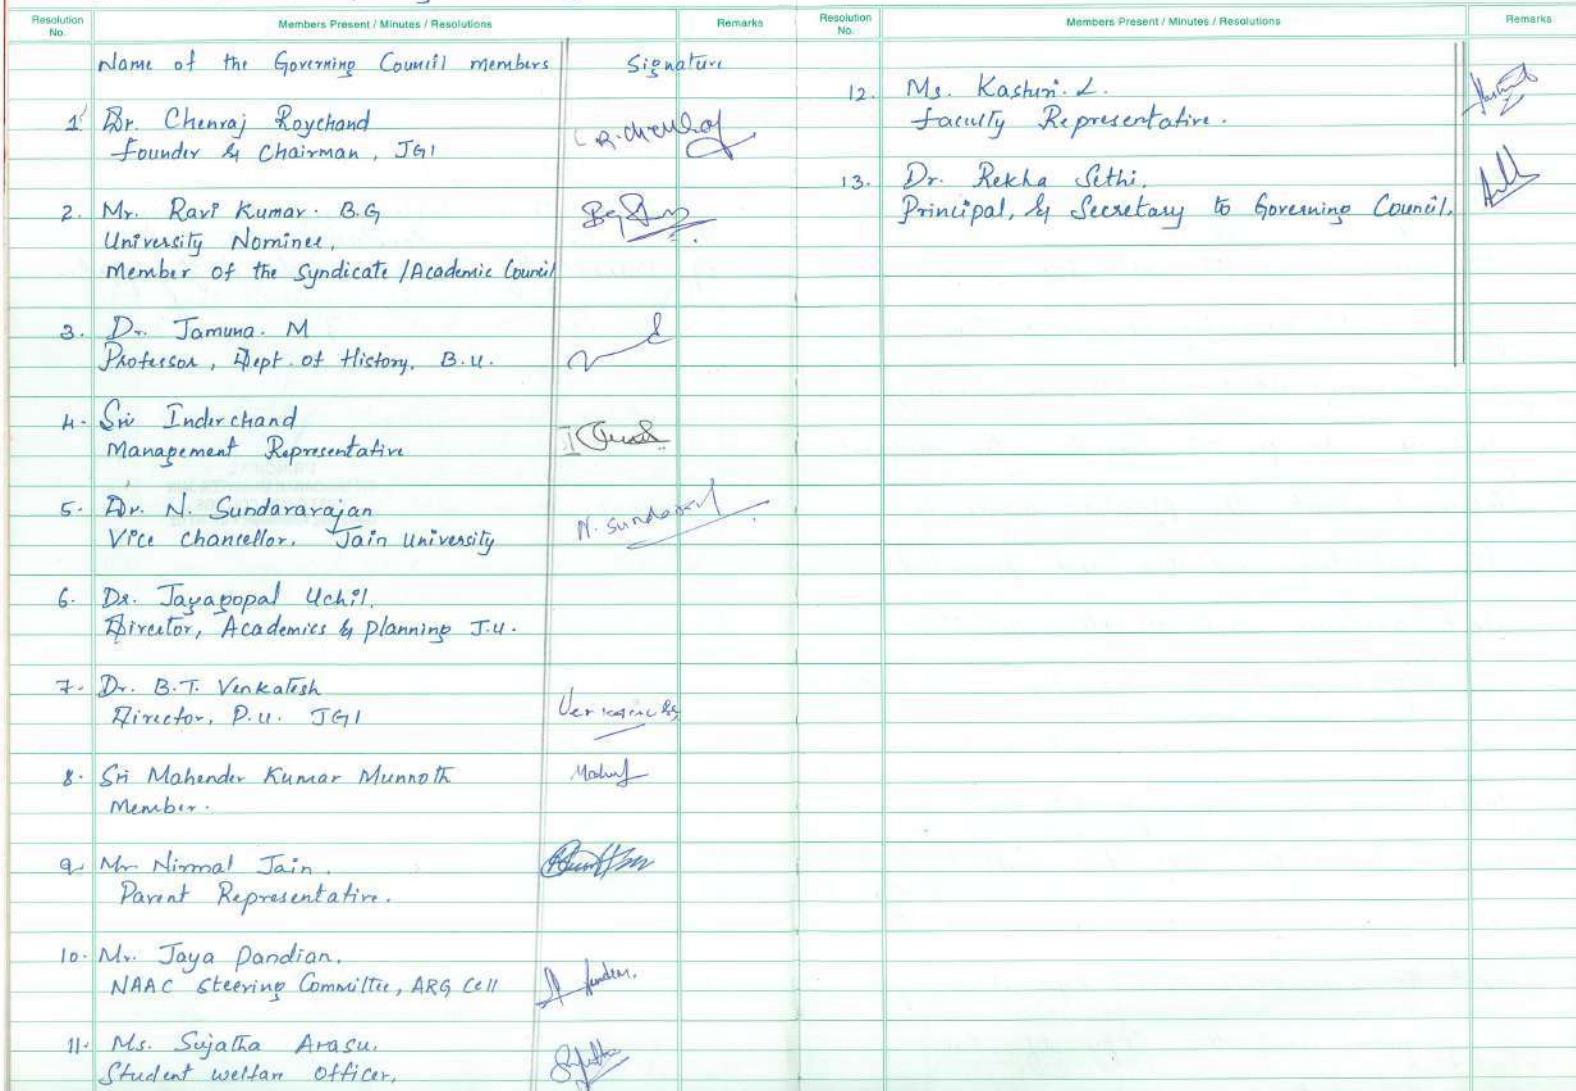 Resolution No.
Members Present / Minutes / Resolutions
Remarks
Name of the Governing Council members
Signature
1. Dr. Chenraj Roychand
Founder & Chairman, JGI
2. Mr. Ravi Kumar. B.G
University Nominee,
Member of the Syndicate / Academic Council
3. Dr. Jamuna. M
Professor, Dept. of History, B.U.
4. Sri Inderchand
Management Representative
5. Dr. N. Sundararajan
Vice chancellor. Jain University
N. Sundara
6. Dr. Jayagopal Uchil.
Director, Academics & planning J.U.
7. Dr. B.T. Venkatesh
Director, P.U. JGI
8. Sri Mahender Kumar Munnoth
Member.
9. Mr Nirmal Jain.
Parent Representative.
10. Mr. Jaya Pandian.
NAAC Steering Committee, ARG Cell
11. Ms. Sujatha Arasu.
Student welfare Officer.
Resolution No.
Members Present / Minutes / Resolutions
Remarks
12. Ms. Kasturi. L.
Faculty Representative.
13. Dr. Rekha Sethi.
Principal, & Secretary to Governing Council.